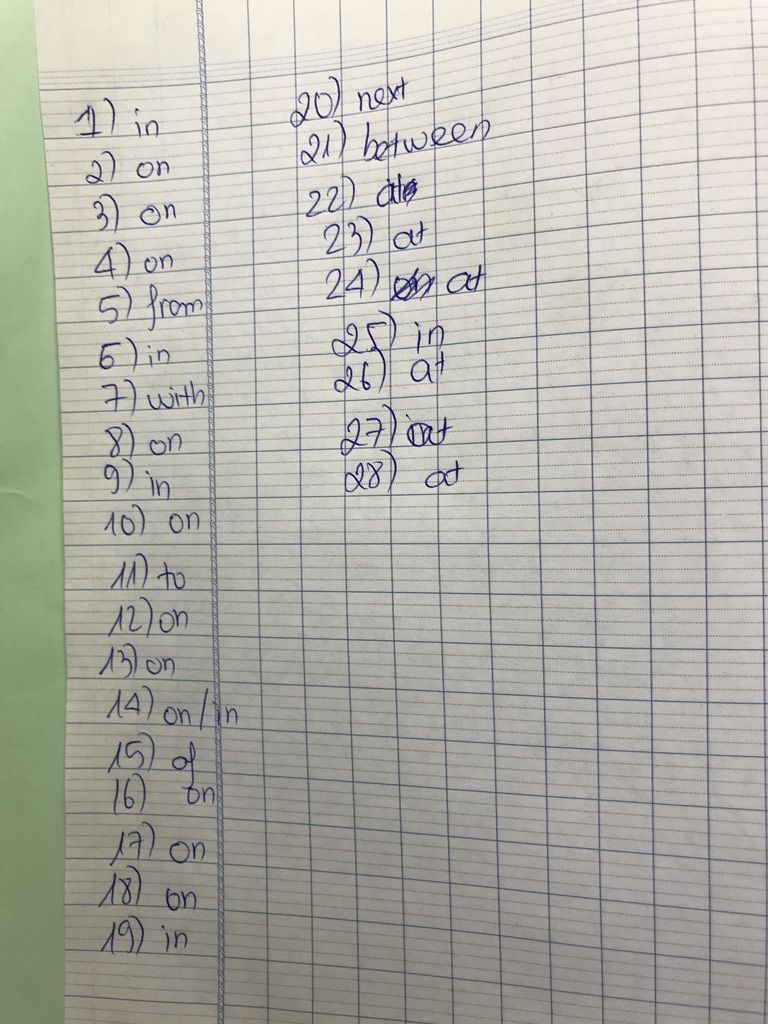 1) in
2) on
3) on
4) on
5) from
6) in
7) with
8) on
9) in
10) on
11) to
12) on
13) on
14) on/in
15) of
16) on
17) on
18) on
19) in
20) next
21) between
22)
23) at
24) at
25) in
26) at
27) at
28) at